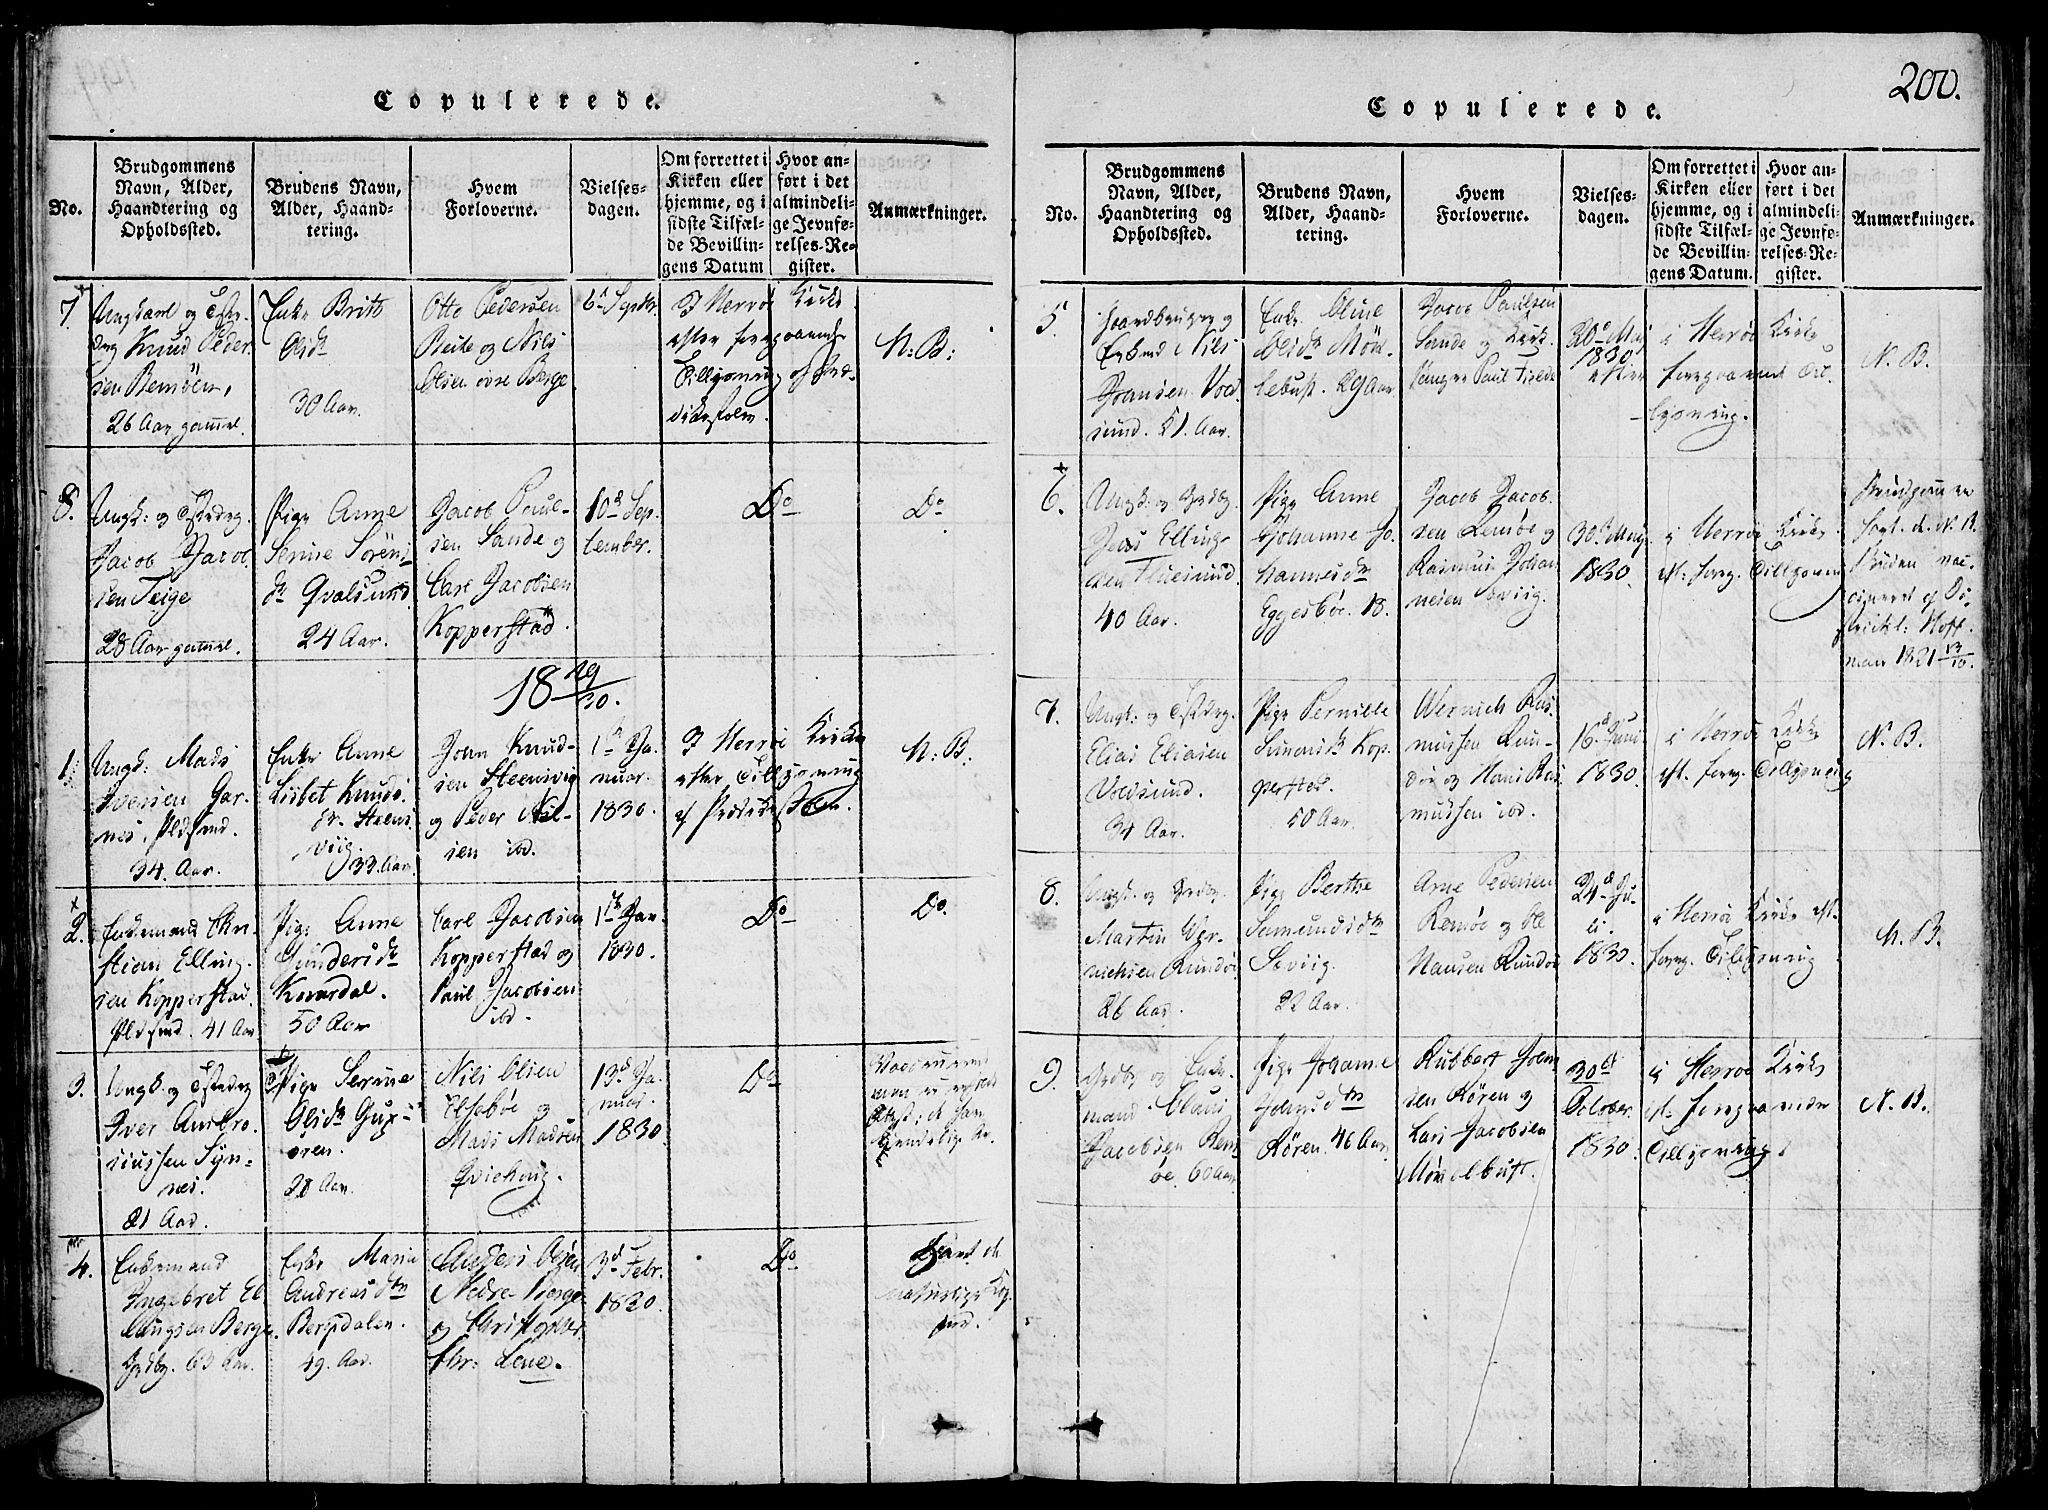 Copulerede.
No.
Brudgommens
Navn, Alder,
Haandtering og
Opholdssted.
Brudens Navn,
Alder, Haand-
tering.
Hvem
Forloverne.
Vielses-
dagen.
Om forrettet i
Kirken eller
hjemme, og i
sidste Tilfæl-
de Bevillin-
gens Datum
Hvor an-
ført i det
almindeli-
ge Jevnfø-
relses-Re-
gister.
Anmærkninger.
7.
og
Knud Peder-
sen Remöen,
26 Aar gamel.
Enke Brite
Olsdr
30 Aar.
Otto Pedersen
og Nils
Olsen øvre Berge
6te Septbr.
I Herrø Kirke
efter foregaaende
Tillysning af Præ-
dikestolen.
N: B:
8.
Ungk: og
Jacob Jacob-
sen Teige
28 Aar gamel.
Pige Anne
Serine Sörens
dr Qvalsund
24 Aar.
Jacob Paul-
sen Sande og
Carl Jacobsen
Kopperstad.
10d Sep-
tember.
Do
Do
18 29/30.
1.
Ungk: Mads
Iversen Gar-
nes,
34. Aar.
Enke Anne
Lisbet Knuds-
dr. Steens-
viig.
33. Aar.
John Knud-
sen Steensvig
og Peder Nil-
sen ibd.
1te Ja-
nuar.
1830.
I Herrø Kirke
efter Tillysning
af Prædikestolen.
N: B.
2.
Enkemand Chri-
stian Elling-
sen Kopperstad.
41 Aar
Pige Anne
Gundersdr
Kvardal.
50 Aar
Carl Jacobsen
Kopperstad og
Paul Jacobsen
ibd.
1te Jan.
1830.
Do
Do.
3.
Ungk. og
Iver Ambro-
siussen Syn-
nes.
21 Aar.
Pige Serine
Olsdr
28 Aar.
Nils Olsen
og
Mads Madsen
13d Ja-
nuar.
1830.
Do
4.
Enkemand
Ingebret El-
lingsen Berge.
63 Aar.
Enke Maria
Andreasdtr
Bergdalen.
49. Aar.
Anders Olsen
Nedre Berge
og Christopher
Chr: Leine.
3d Febr.
1830.
Do
havt de
naturlige Kop-
per.
200.
Copulerede.
No.
Brudgommens
Navn, Alder,
Haandtering og
Opholdssted.
Brudens Navn,
Alder, Haand-
tering.
Hvem
Forloverne.
Vielses-
dagen.
Om forrettet i
Kirken eller
hjemme, og i
sidste Tilfæl-
de Bevillin-
gens Datum.
Hvor an-
ført i det
almindeli-
ge Jevnfø-
relses-Re-
gister.
Anmærkninger.
5.
Gaardbruger og
Enkemd Nils
Johnsen Vold-
sund. 51. Aar.
Enke Oline
Olsdr Möl-
lebust. 29 Aar.
Jacob Paulsen
Sande og Kirke-
sanger Paul
20de Maj
1830
i Herrø Kirke
efter foregaaende Til-
lysning.
N. B.
6.
Ungk: og Grdbr
Jens Elling-
sen
40 Aar.
Pige Anne
Johanne Jo-
hannesdtr
Eggesböe. 18.
Jacob Jacob-
sen Remöe og
Rasmus Johan-
nesen
30te Maj
1830.
i Herrø Kirke
eft: foreg. Tillysning
Brudgommen
havt d. n. B.
Bruden vac-
cineret af Di-
strictsl: Hoff-
man 1821 13/10.
7.
Ungk: og
Elias Eliasen
Voldsund.
34 Aar.
Pige Pernille
Simonsdr Kop-
perstad.
50 Aar.
Wernich Ras-
mussen Run-
döe og Hans Ras-
mussen ibd.
16d Juni
1830.
i Herrø Kirke
eft. foreg. Tillysning
N. B.
8.
Ungk. og Grdbr.
Martin Wer-
nichsen Rundöe
26 Aar.
Pige Berthe
Samundsdtr
22 Aar.
Arne Pedersen
Remöe og Ole
Hansen Rundöe
24d Ju-
li.
1830.
i Herrø Kirke eft.
foreg. Tillysning
N. B.
9.
Grdbr og Enke-
mand Claus
Jacobsen Rem-
öe. 60 Aar
Pige Johanne
Johnsdtr
Røren. 46 Aar
Rubbert John-
sen Røren og
Lars Jacobsen
Möllebust.
30d
October.
1830.
i Herrø Kirke
eft. foregaaende
Tillysning.
N. B.